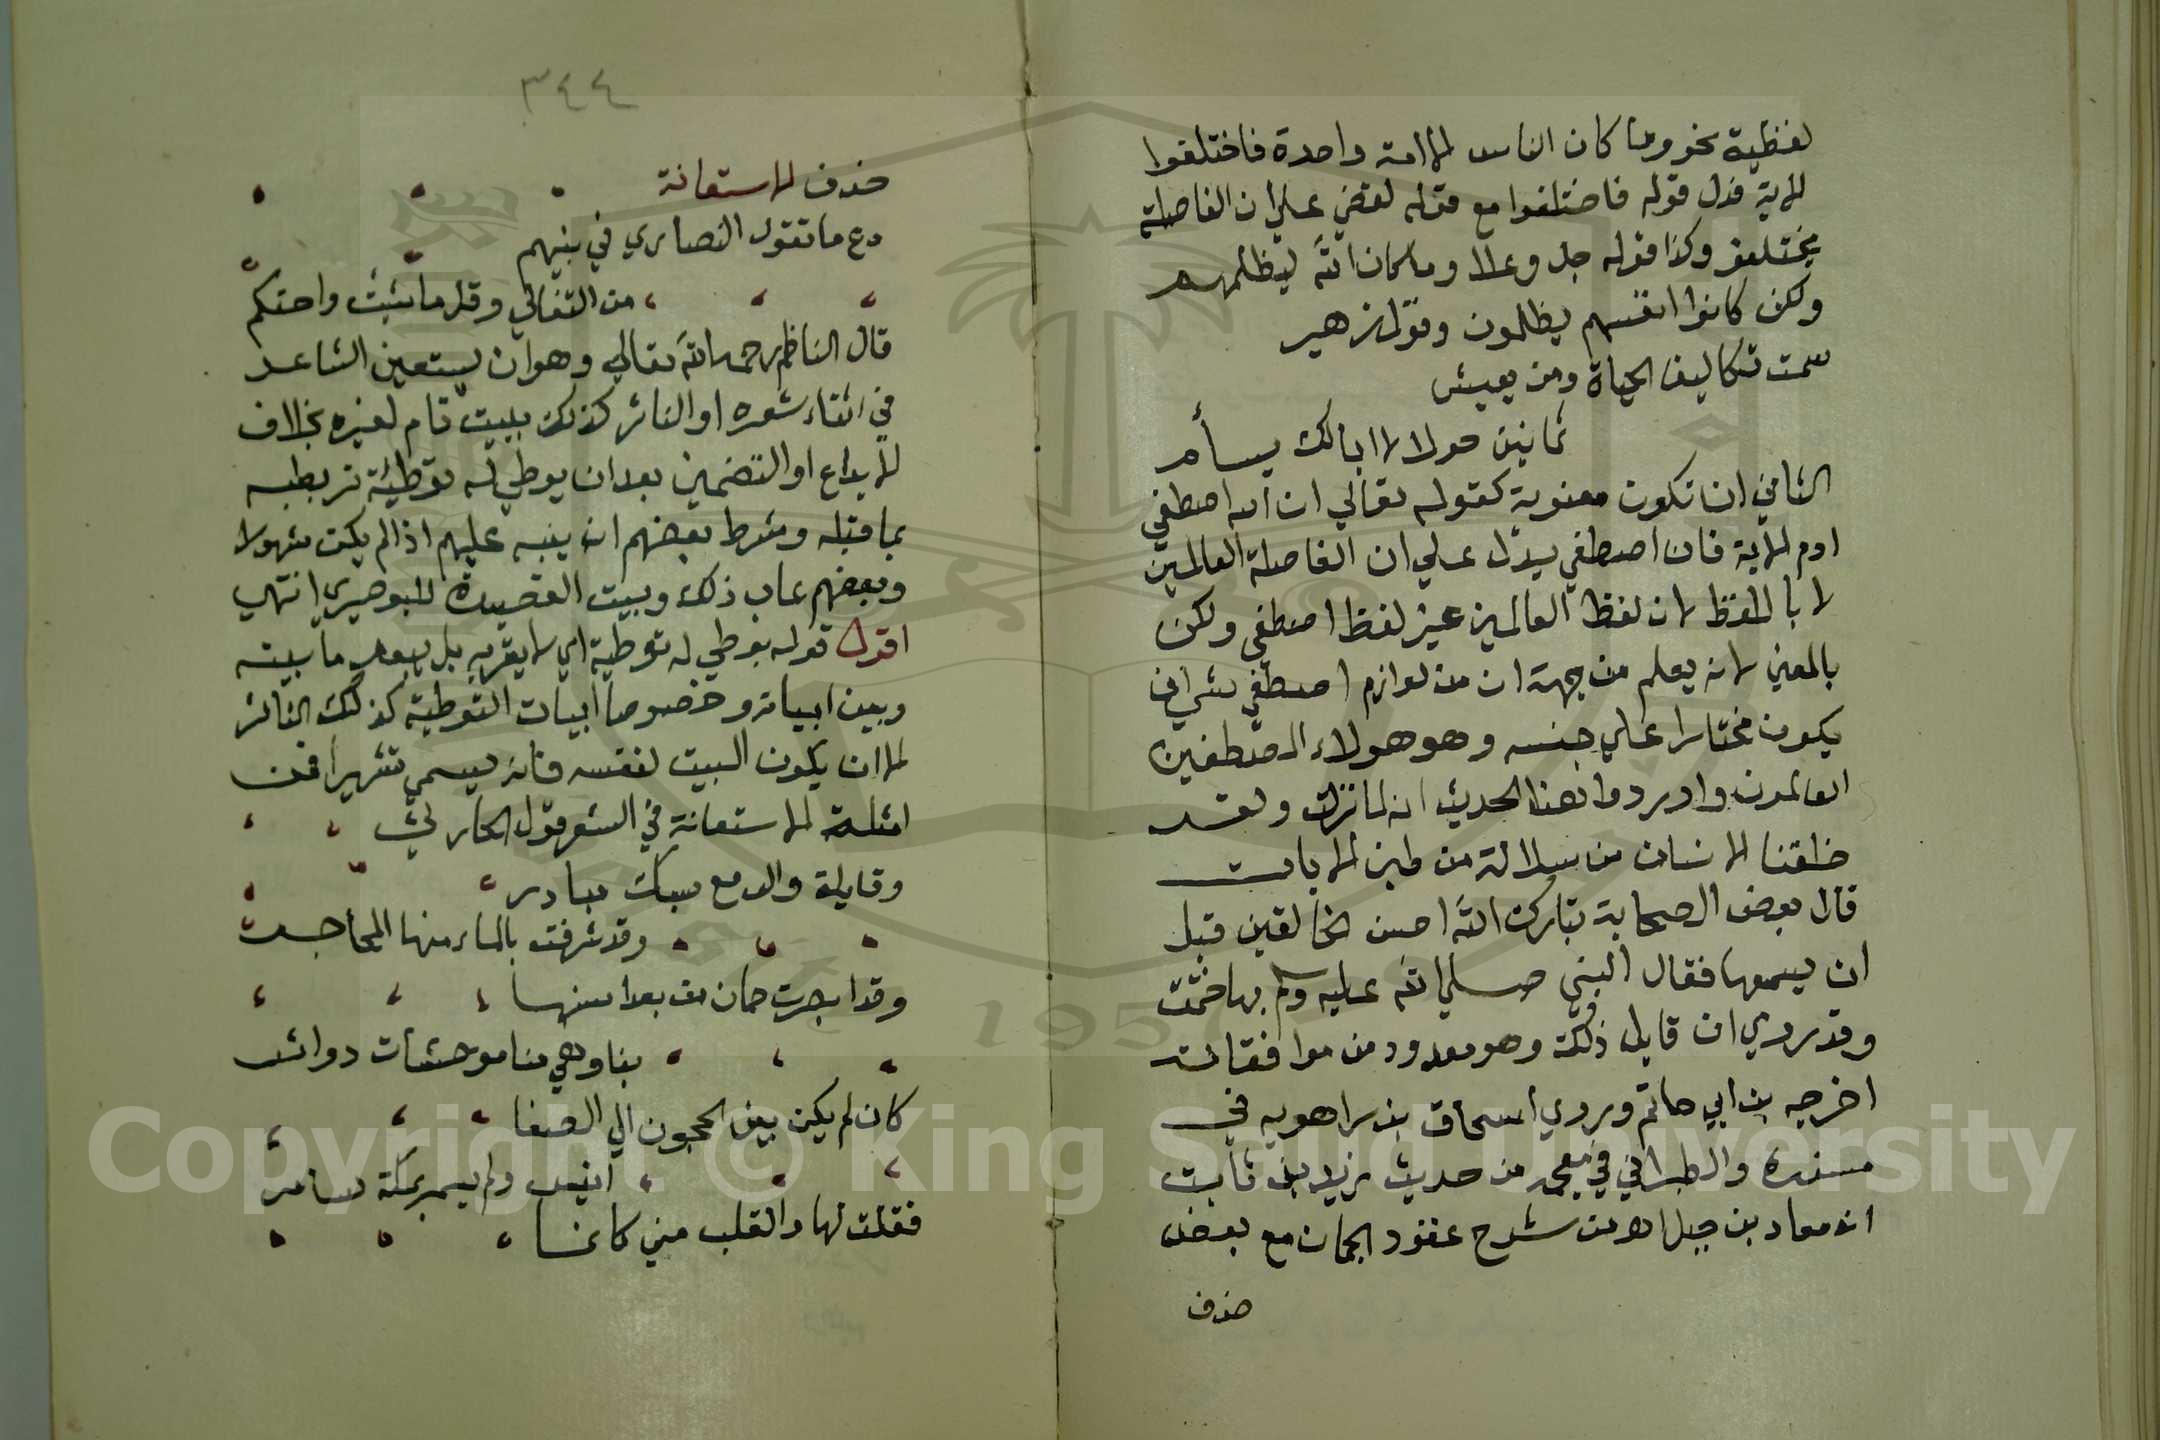 لفظية نحو وما كان الناس الا امة واحدة فاختلفوا
الاية فدل قوله فاختلفوا مع قوله لقضي على ان الفاصلة
يختلفو وكذا قوله جل وعلا وما كان الله ليظلمهم
ولكن كانوا انفسهم يظلمون وقول زهير
سمت تكاليف الحياة ومن يعيش
ثمانين حولا لا ابالك يسأم
الثاني ان تكون معنوية كقوله تعالي ان الله اصطفي
ادم الاية فان اصطفي يدل علي ان الفاصلة العالمين
لا باللفظ لان لفظ العالمين غير لفظ اصطفي ولكن
بالمعني لانه يعلم من جهة ان من لوازم اصطفي شي ان
يكون مختارا علي جنسه وهو هولاء المصطفين
العالمون واوردوا هنا الحديث انه لما نزلت ولقد
خلقنا الانسان من سلالة من طين الايات
قال بعض الصحابة تبارك الله احسن الخالقين قبل
ان يسمعها فقال النبي صلي الله عليه وسلم بها ختمت
وقد روي ان قايل ذلك وهو معدود من موافقاته
اخرجه بن ابي حاتم وروي اسحاق بن راهويه في
مسنده والطبراني في معجمه من حديث زيد بن ثابت
انه معاد بن جبل اه من شرح عقود الجمان مع بعض
حذف
٣٤٤
حذف الاستعانة
دع ما تقول النصاري في نبيهم
من التغالي وقل ما شئت واحتكم
قال الناظم رحمه الله تعالي وهو ان يستعين الشاعر
في اثناء شعره او الناثر كذلك ببيت تام لغيره بخلاف
الايداع او التضمين بعد ان يوطي له توطئة تربطه
بما قبله وشرط بعضهم ان ينبه عليهم اذا لم يكن مشهولا
وبعضهم عاب ذلك وبيت القصيدة للبوصيري انتهي
اقول قوله يوطي له توطية اي لا يقربه بل يبعد ما بينه
وبين ابياته وخصوصا ابيات التوطية كذلك الناثر
الا ان يكون البيت لنفسه فانه يسمي تشهيرا فمن
امثلة الاستعانة في الشعر قول الحارثي
وقايلة والدمع سبك مبادر
وقد شرقت بالماء منها المحاجر
وقد ابصرت حمان من بعد انسها
بنا وهي منا موحشات دوائر
كان لم يكن بين الحجون الي الصفا
انيس ولم يسمر بمكة سامر
فقلت لها والقلب مني كانما
Copyright © King Saud University
1957